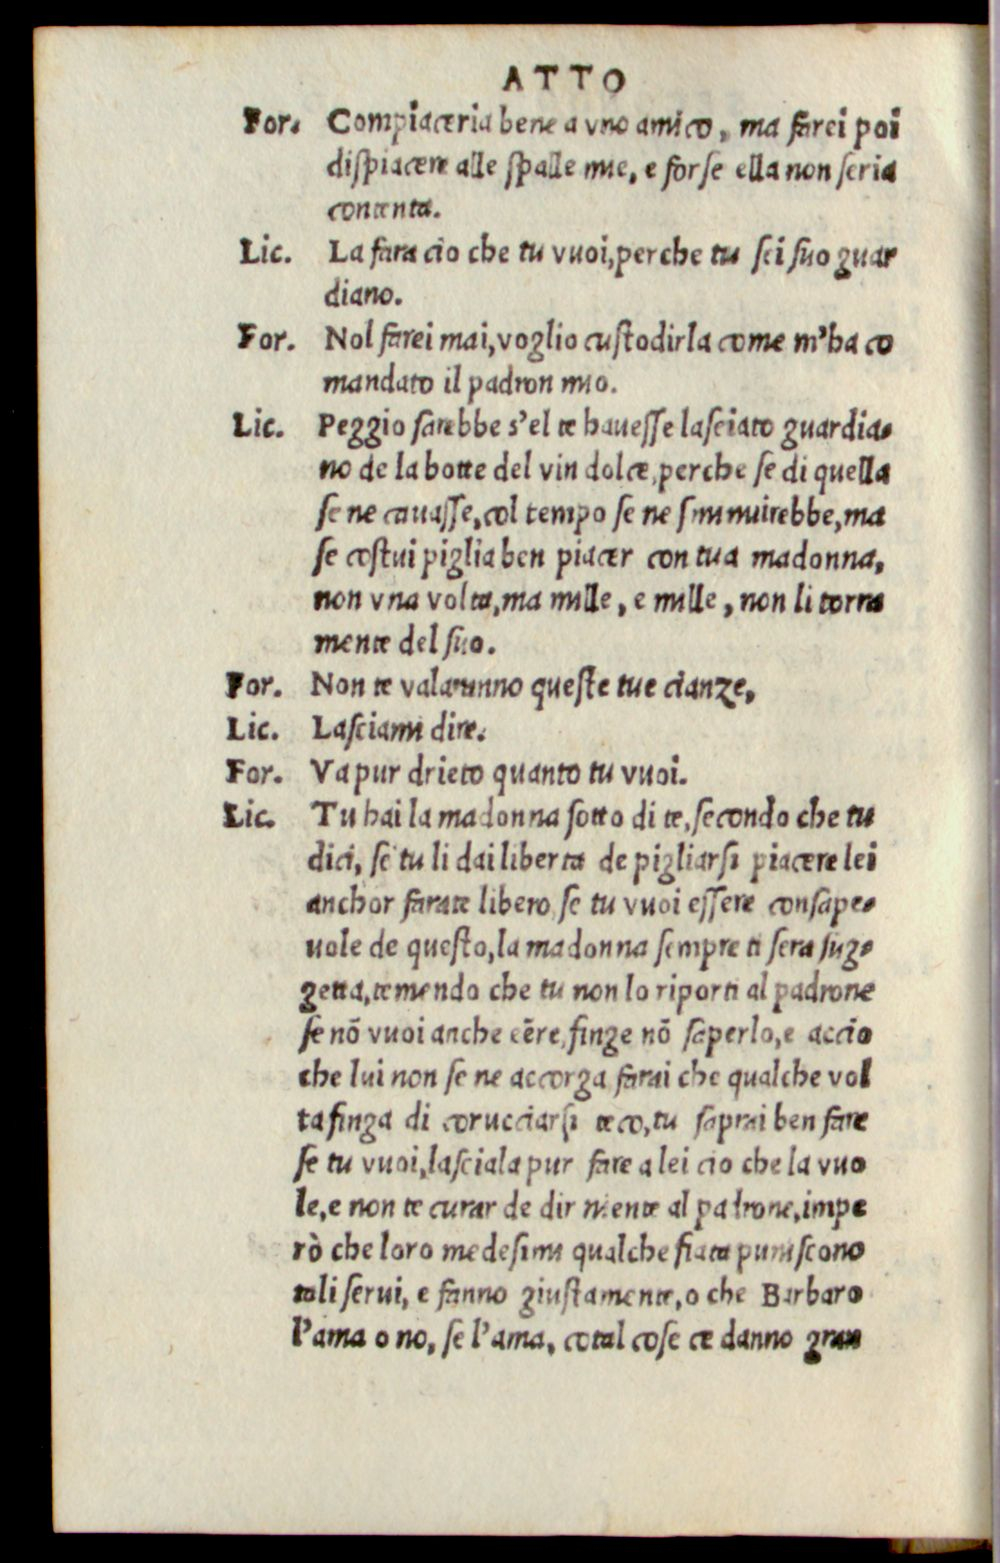 ATTO
For. Compiaceria bene a vno amico, ma farei poi
dispiacere alle spalle mie, e forse ella non seria
contenta.
Lic. La fara cio che tu vuoi, perche tu sei suo guar
diano.
For. Nol farei mai, voglio custodirla come m'ha co
mandato il padron mio.
Lic. Peggio sarebbe s'el te hauesse lasciato guardia-
no de la botte del vin dolce, perche se di quella
se ne cauasse, col tempo se ne sminuirebbe, ma
se costui piglia ben piacer con tua madonna,
non vna volta, ma mille, e mille, non li torra
niente del suo.
For. Non te valaranno queste tue cianze,
Lic. Lasciami dire.
For. Va pur drieto quanto tu vuoi.
Lic. Tu hai la madonna sotto di te, secondo che tu
dici, se tu li dai liberta de pigliarsi piacere lei
anchor farate libero, se tu vuoi essere consape-
uole de questo, la madonna sempre ti sera sug-
getta, temendo che tu non lo riporti al padrone
se nō vuoi anche eēre, finge nō saperlo, e accio
che lui non se ne accorga farai che qualche vol
ta finga di corucciarsi teco, tu saprai ben fare
se tu vuoi, lasciala pur fare a lei cio che la vuo
le, e non te curar de dir niente al padrone, impe
rò che loro medesimi qualche fiata puniscono
tali serui, e fanno giustamente, o che Barbaro
l'ama o no, se l'ama, cotal cose ce danno gran